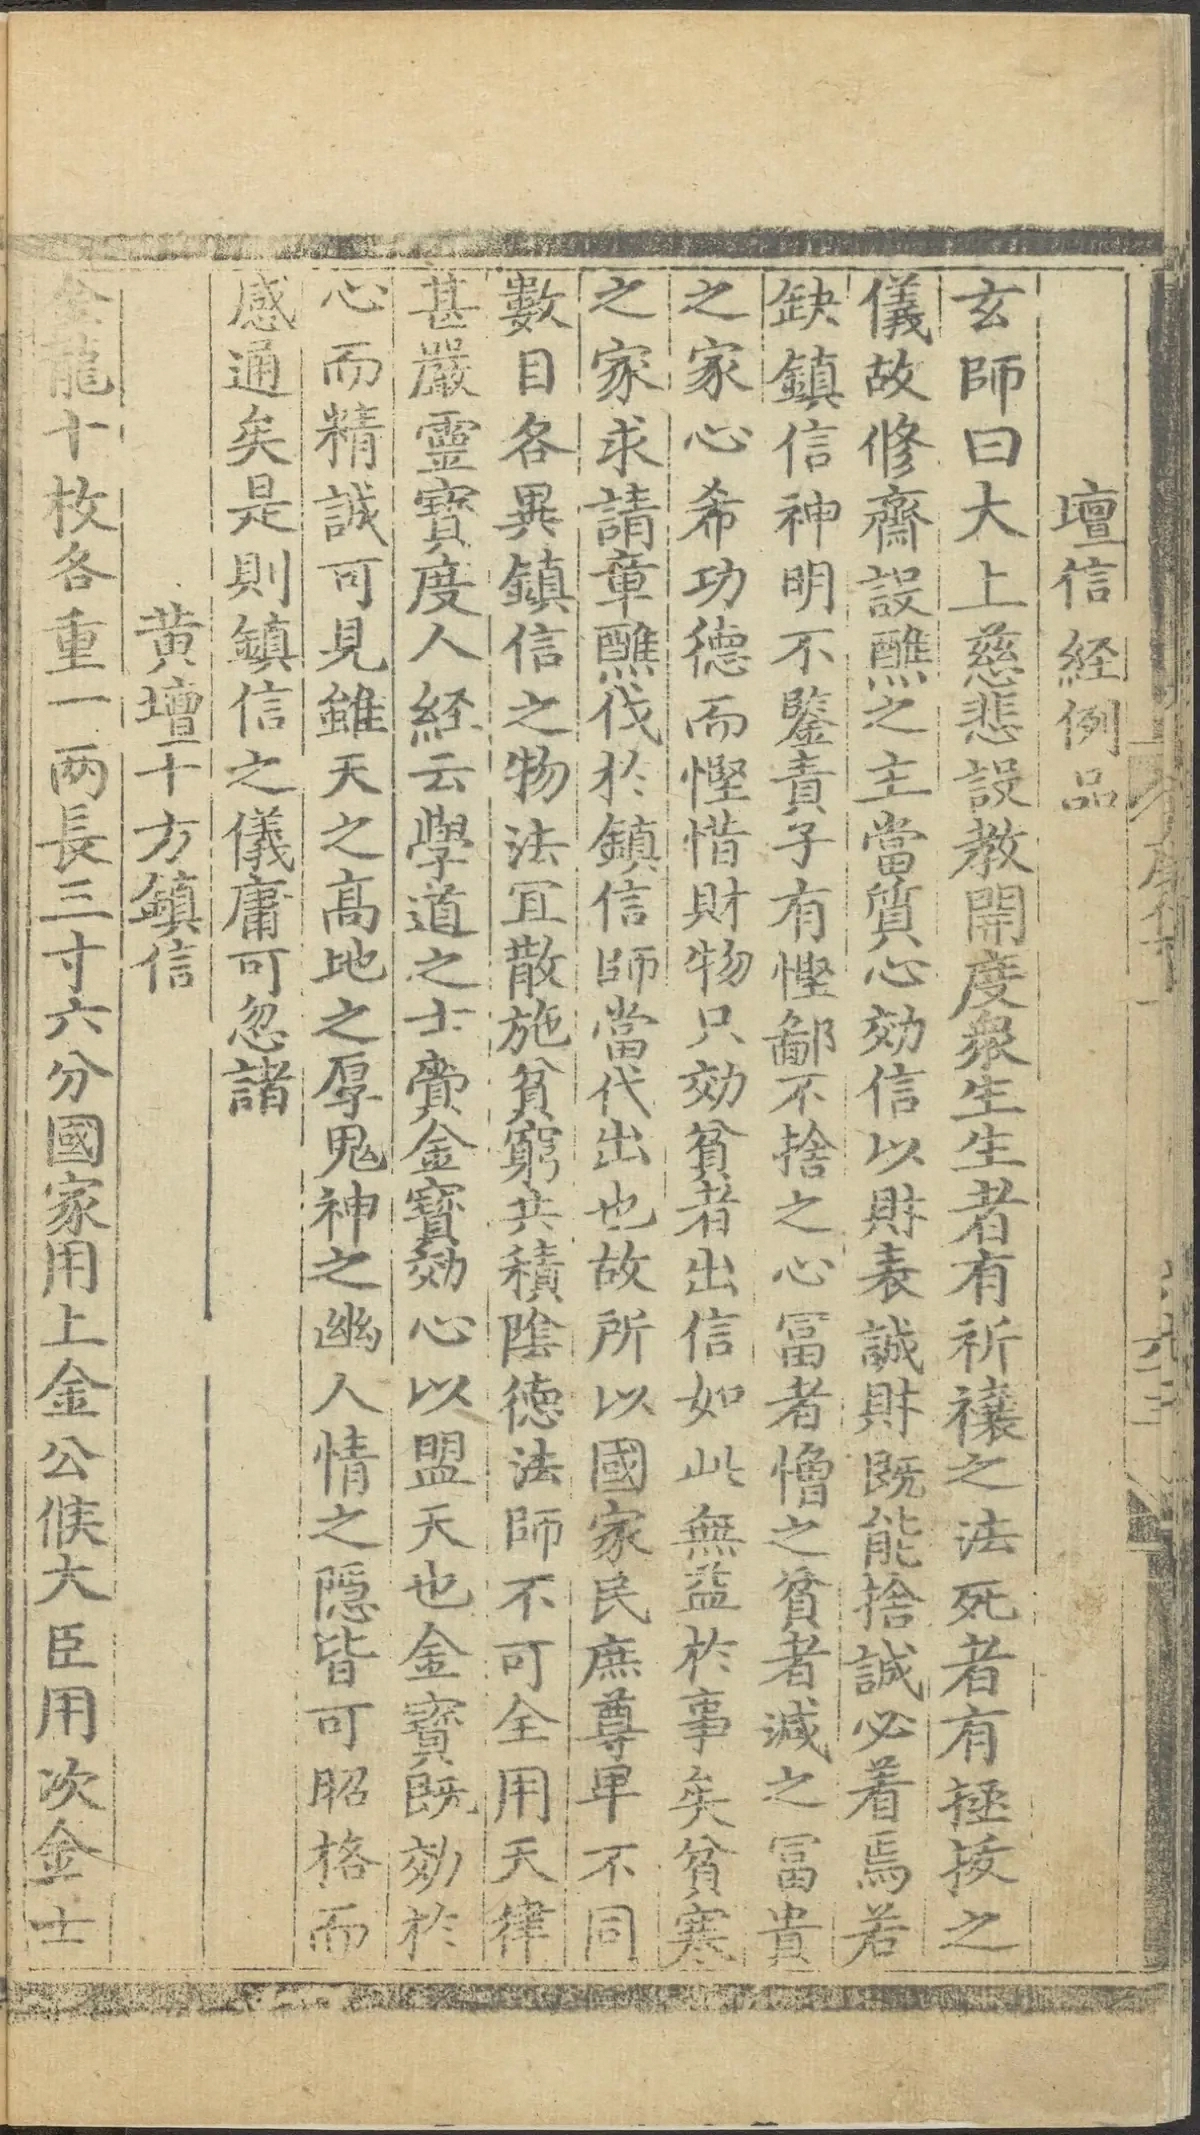 壇信経例品
玄師曰大上慈悲設教開度衆生生者有祈禳之法死者有拯拔之
儀故修齋設醮之主當質心効信以財表誠財既能捨誠必着焉若
缺鎮信神明不鑒責子有慳鄙不捨之心冨者憎之貧者减之冨貴
之家心希功德而慳惜財物只効貧者出信如此無益於事矣貧寒
之家求請章醮伐於鎮信師當代出也故所以國家民庶尊卑不同
數目各異鎮信之物法冝散施貧窮共積陰德法師不可全用天律
甚嚴靈寶度人経云學道之士賫金寶効心以盟天也金寶既効於
心而精誠可見雖天之高地之厚鬼神之幽人情之隠皆可昭格而
感通矣是則鎮信之儀庸可忽諸
黄壇十方鎮信
金龍十枚各重一两長三寸六分國家用上金公侯大臣用次金士